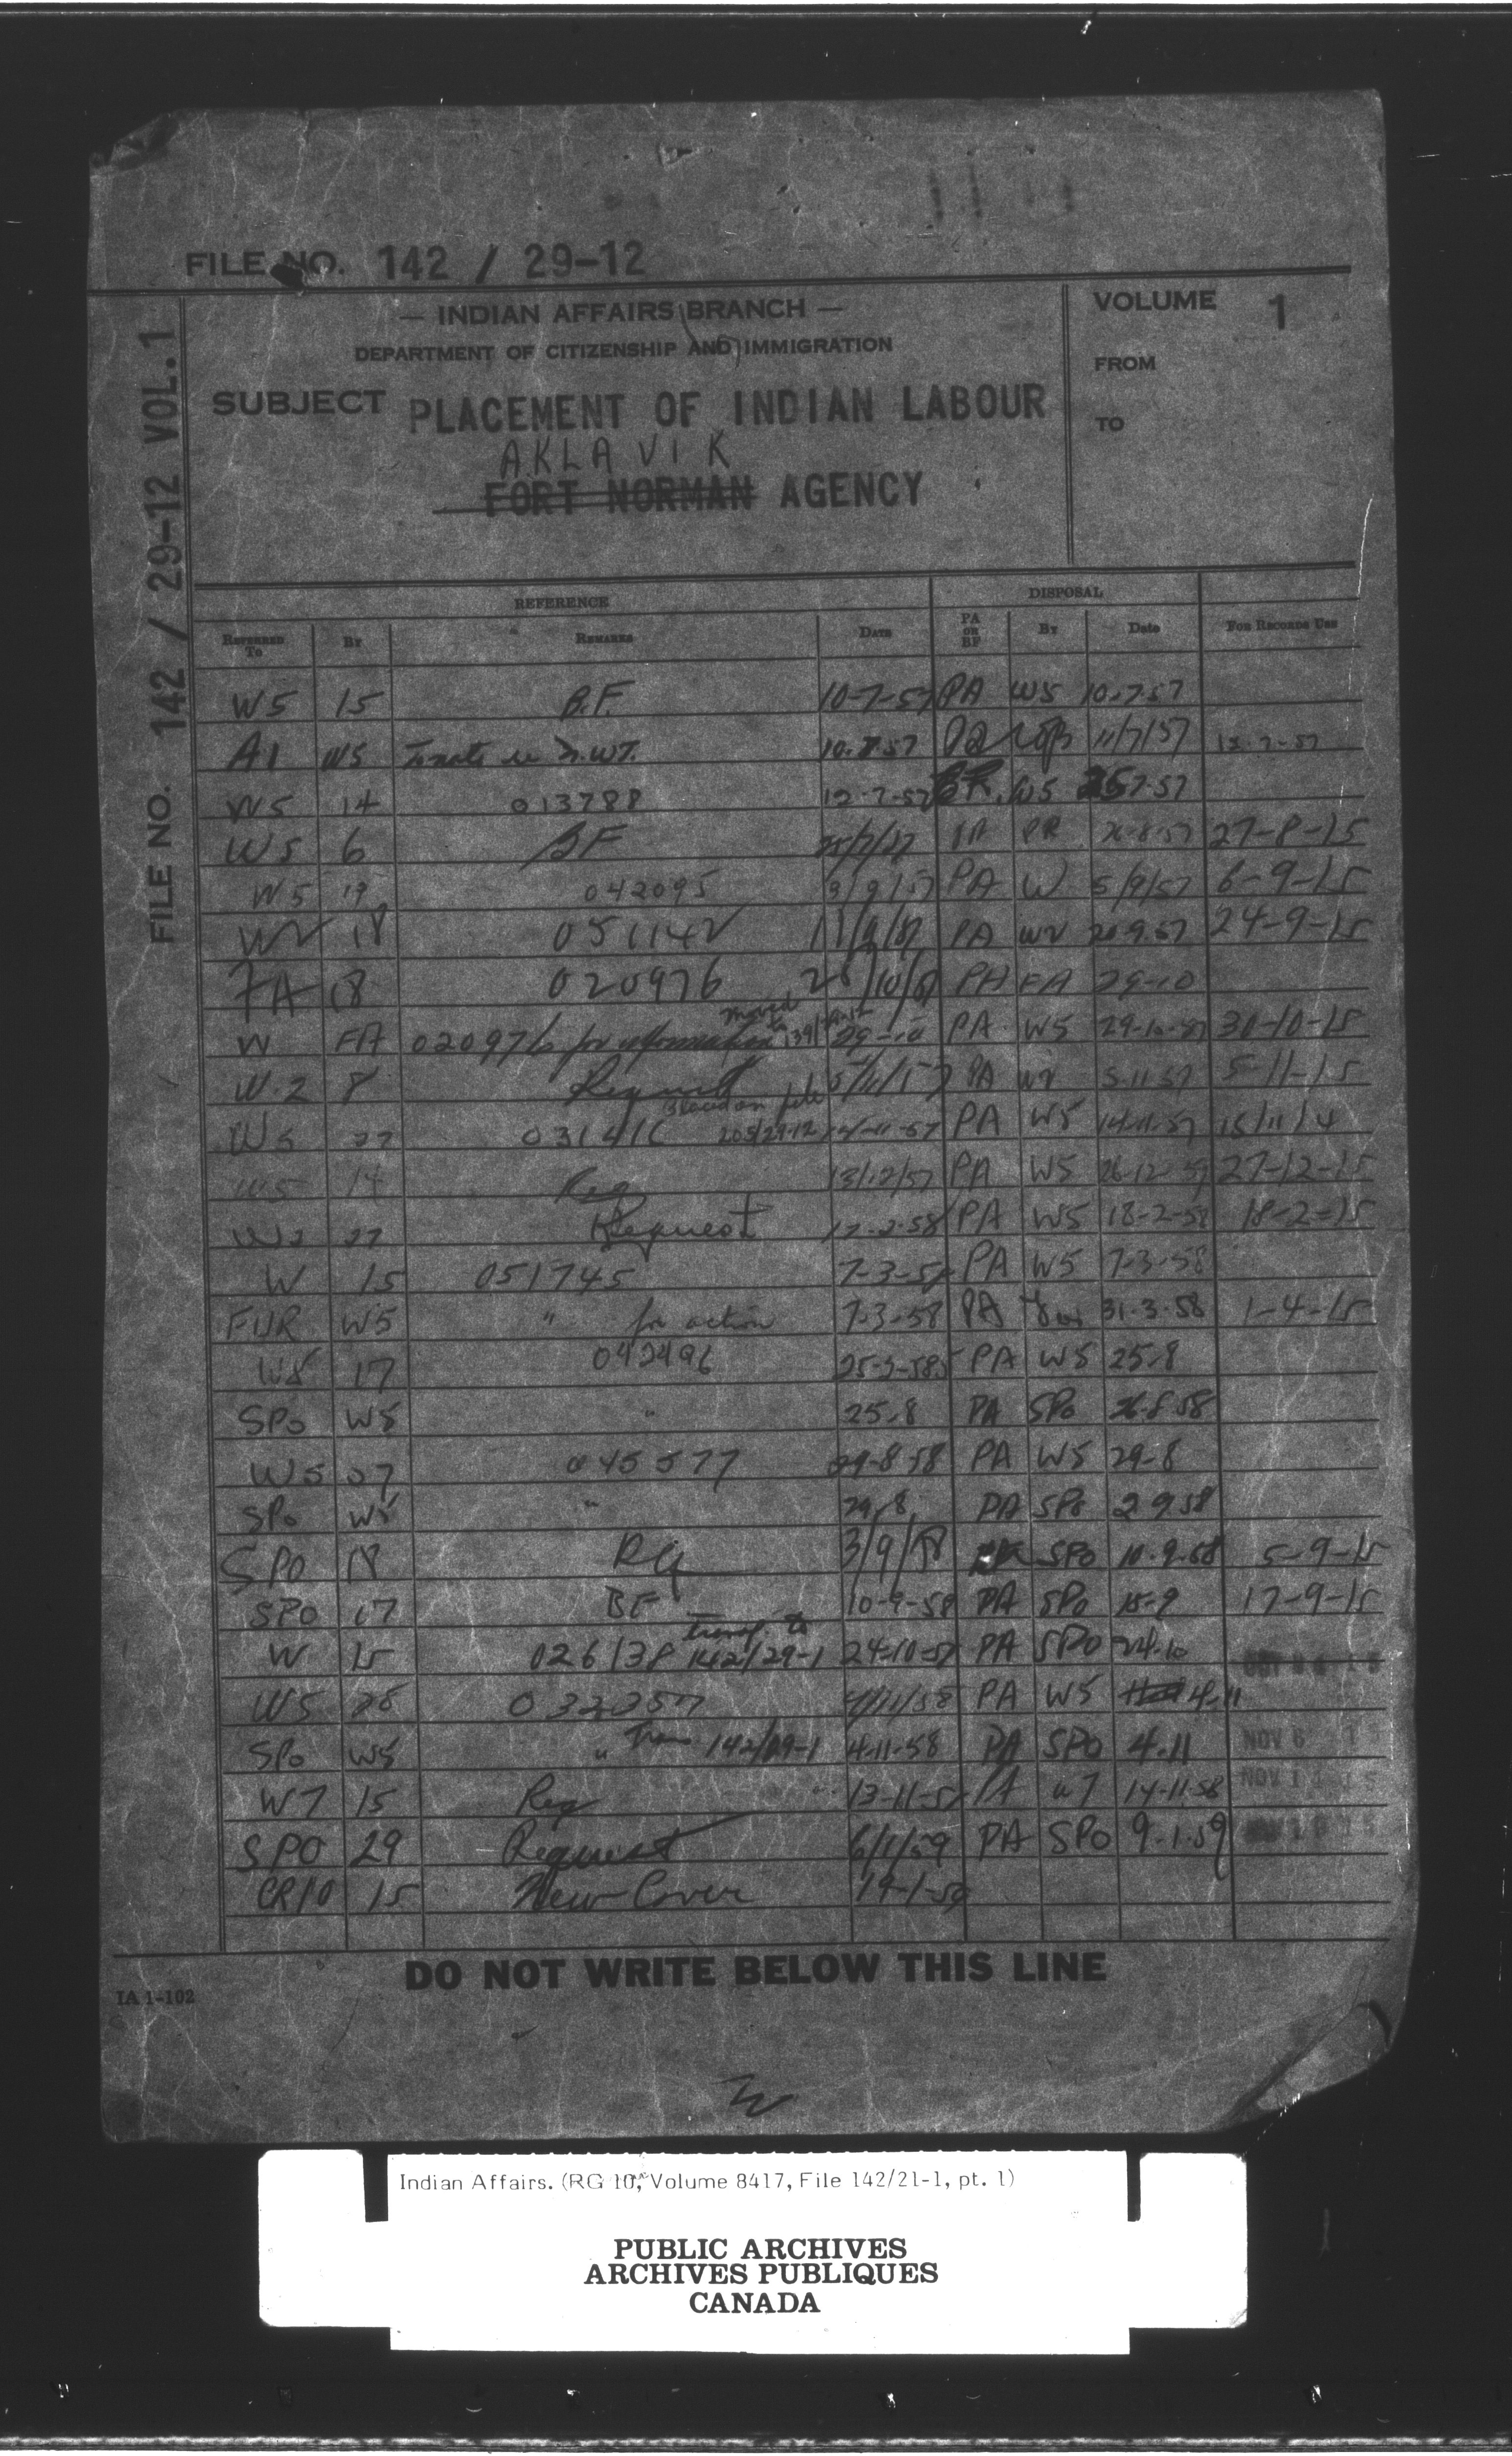 FILE NO. 142 / 29-12
— INDIAN AFFAIRS BRANCH —
DEPARTMENT OF CITIZENSHIP AND IMMIGRATION
VOLUME 1
FROM
TO
SUBJECT PLACEMENT OF INDIAN LABOUR
AKLAVIK
FORT NORMAN AGENCY
FILE NO. 142 / 29-12 VOL. 1
REFERENCE DISPOSAL
REFERRED TO BY REMARKS DATE PA OR BF By Date FOR RECORDS USE
W5 15 B.F. 10-7-57 PA W5 10.7.57
A1 W5 N.W.T. 10.7.57 PA 11/7/57 12-7-57
W5 14 013788 12-7-57 BF W5 257-57
W5 6 BF PA PR 26-8-57 27-8-15
W5 19 042095 3/9/57 PA W 5/9/57 6-9-15
W2 18 051142 PA W2 20.9.57 24-9-15
FA 18 020976 PA FA 29-10
W FA 020976 for information moved to 29-10 PA W5 29-10-57 30-10-15
W.2 8 Request 5/11/57 PA W2 5.11.57 5-11-15
W5 27 Placed on file 203/29-12 14-11-57 PA W5 14-11-57 15/11/4
W5 14 Req 13/12/57 PA W5 26-12-57 27-12-15
W5 27 Request 17-2-58 PA W5 18-2-58 18-2-15
W 15 051745 7-3-58 PA W5 7-3-58
FUR W5 " for action 7-3-58 PA 31-3-58 1-4-15
W5 17 042496 PA W5 25.8
SPO W5 " 25.8 PA SPO 26-8-58
W5 27 045577 29-8-58 PA W5 29-8
SPO W5 " 29.8 PA SPO 2 9 58
SPO 18 Rq 3/9/58 SPO 10.9.58 5-9-15
SPO 17 BF 10-9-58 PA SPO 15-9 17-9-15
W 15 026138 transf. to 142/29-1 24-10-58 PA SPO 24.10
W5 28 4/11/58 PA W5 4.11
SPO W5 " Trans 142/29-1 4-11-58 PA SPO 4.11 NOV 6 15
W7 15 Req 13-11-58 PA W7 14-11-58 NOV 1
SPO 29 Request 6/1/59 PA SPO 9.1.59
CR10 15 New Cover 19-1-59
DO NOT WRITE BELOW THIS LINE
IA 1-102
Indian Affairs. (RG 10, Volume 8417, File 142/21-1, pt. 1)
PUBLIC ARCHIVES
ARCHIVES PUBLIQUES
CANADA